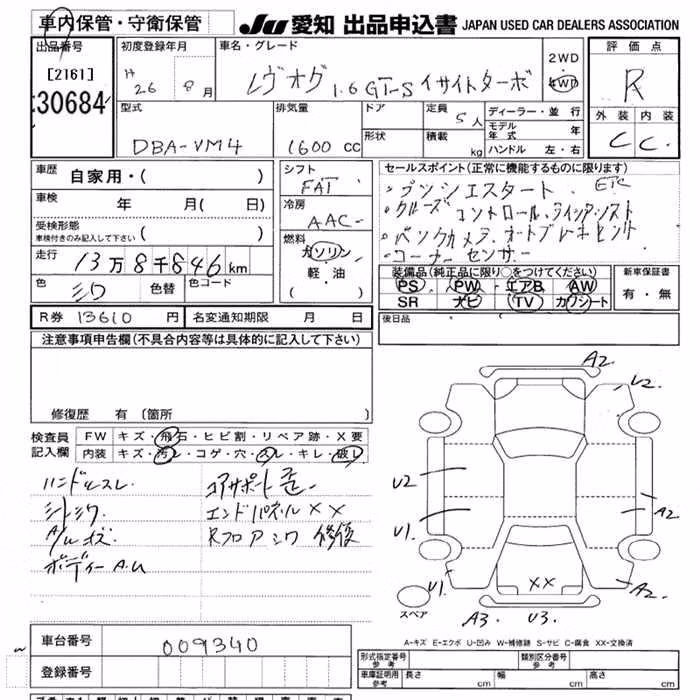 車内保管・守衛保管 JU 愛知 出品申込書 JAPAN USED CAR DEALERS ASSOCIATION
出品番号 [2161] 30684
初度登録年月 H 26 8月
車名・グレード レヴォーグ 1.6 GT-S アイサイトターボ
2WD 4WD
評価点 R
外装 内装
C C
型式 DBA-VM4
排気量 1600 cc
ドア 形状
定員 5人
積載 kg
ディーラー・並行
モデル年式 年
ハンドル 左・右
車歴 自家用・( )
車検 年 月( 日)
受検形態
車検付きのみ記入して下さい ( )
走行 13万8千846km
色 シロ 色替 色コード
シフト FAT
冷房 AAC
燃料 ガソリン
軽・油
( )
セールスポイント(正常に機能するものに限ります)
・プッシュスタート. ETC
・クルーズコントロール.
・バックカメラ.
・コーナーセンサー
装備品(純正品に限り○をつけてください)
PS PW エアB AW
SR ナビ TV カワシート
新車保証書
有・無
後日品
R券 13610 円 名変通知期限 月 日
注意事項申告欄(不具合内容等は具体的に記入して下さい)
修復歴 有〔箇所 〕
検査員記入欄
FW キズ・飛石・ヒビ割・リペア跡・X要
内装 キズ・汚レ・コゲ・穴・スレ・キレ・破レ
ハンドルスレ
コアサポート
エンドパネル XX
Rフロア シワ 修復
A/W キズ
ボディー A.U
A2
U2
U2
U1
A2
U1
XX
A2
A3
U3
スペア
A-キズ E-エクボ U-凹み W-補修跡 S-サビ C-腐食 XX-交換済
車台番号 009340
登録番号
形式指定番号 参考 類別区分番号 参考
車庫証明用 参考 長さ cm 幅 cm 高さ cm